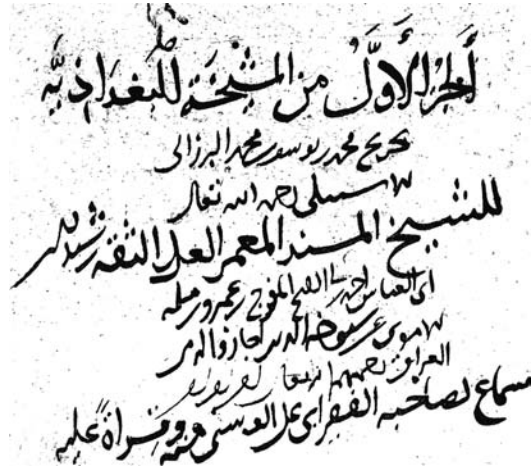 الجزء الأَوَّلُ من المشيخَة البغداذيَّه
تخريج محمد بن يوسف بن محمد البرزالى
الاشبيلى رحمه الله تعالى
للشيخ المسند المعمر العدل الثقه رشيد الدين
ابى العباس احمد بن المفرج بن عمرو بن مسلمه
الاموى عن شيوخه الذين اجازوا له من
العراق رحمهم الله تعالى
سماع لصاحبه الفقير ابى منه وقراةً عليه